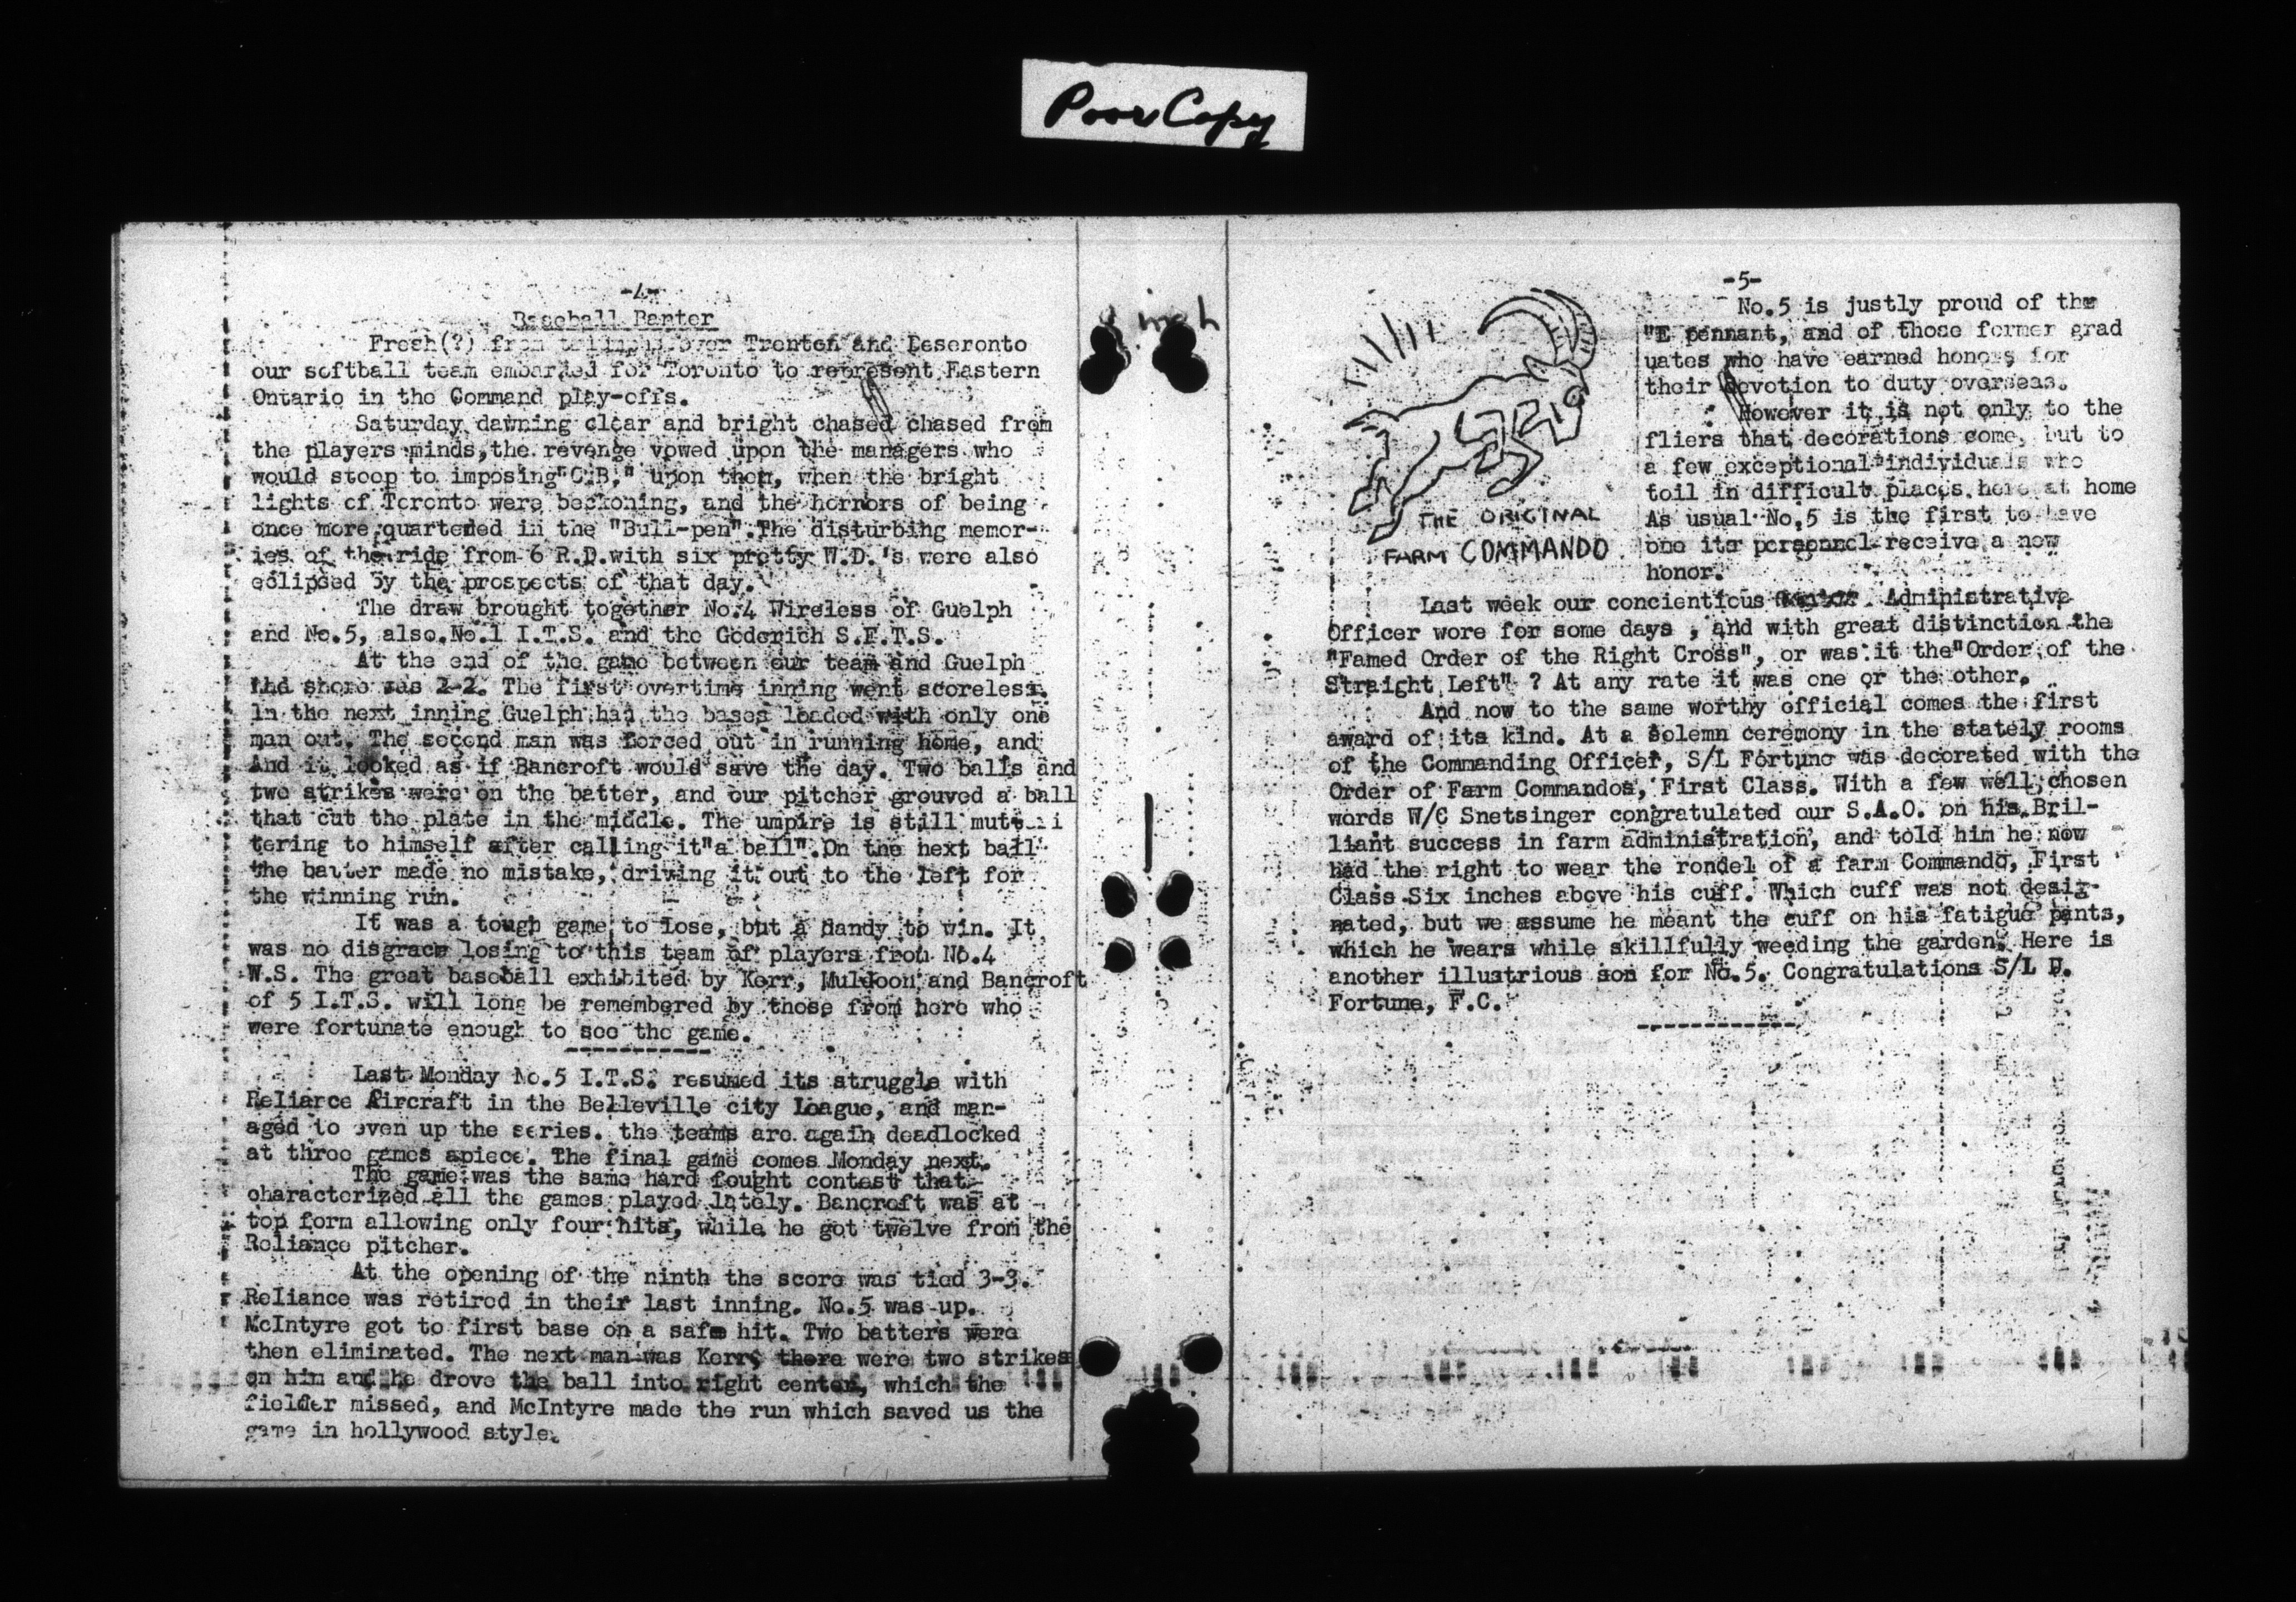 Poor Copy
-4-
Baseball Banter
Fresh(?) from over Trenton and Deseronto
our softball team embarked for Toronto to represent Eastern
Ontario in the Command play-offs.
Saturday dawning clear and bright chased chased from
the players minds, the revenge vowed upon the managers who
would stoop to imposing "C.B." upon them, when the bright
lights of Toronto were beckoning, and the horrors of being
once more quartered in the "Bull-pen". The disturbing memor-
ies of the ride from 6 R.D. with six pretty W.D.'s were also
eclipsed by the prospects of that day.
The draw brought together No.4 Wireless of Guelph
and No.5, also No.1 I.T.S. and the Goderich S.F.T.S.
At the end of the game between our team and Guelph
the score was 2-2. The first overtime inning went scoreless.
In the next inning Guelph had the bases loaded with only one
man out. The second man was forced out in running home, and
And it looked as if Bancroft would save the day. Two balls and
two strikes were on the batter, and our pitcher grouved a ball
that cut the plate in the middle. The umpire is still mut
tering to himself after calling it "a ball". On the next ball
the batter made no mistake, driving it out to the left for
the winning run.
It was a tough game to lose, but a dandy to win. It
was no disgrace losing to this team of players from No.4
W.S. The great baseball exhibited by Kerr, Muldoon and Bancroft
of 5 I.T.S. will long be remembered by those from here who
were fortunate enough to see the game.
-----------
Last Monday No.5 I.T.S. resumed its struggle with
Reliance Aircraft in the Belleville city League, and man-
aged to even up the series. the teams are again deadlocked
at three games apiece. The final game comes Monday next.
The game was the same hard fought contest that
characterized all the games played lately. Bancroft was at
top form allowing only four hits, while he got twelve from the
Reliance pitcher.
At the opening of the ninth the score was tied 3-3.
Reliance was retired in their last inning. No.5 was up.
McIntyre got to first base on a safe hit. Two batters were
then eliminated. The next man was Kerr, there were two strikes
on him and he drove the ball into right center, which the
fielder missed, and McIntyre made the run which saved us the
game in hollywood style.
-5-
No.5 is justly proud of the
"E pennant, and of those former grad
uates who have earned honors for
their devotion to duty overseas.
However it is not only to the
fliers that decorations come, but to
a few exceptional individuals who
toil in difficult places here at home
As usual No.5 is the first to have
one its personnel receive a new
honor.
THE ORIGINAL
FARM COMMANDO
Last week our concienticus Administrative
Officer wore for some days , and with great distinction the
"Famed Order of the Right Cross", or was it the "Order of the
Straight Left" ? At any rate it was one or the other.
And now to the same worthy official comes the first
award of its kind. At a solemn ceremony in the stately rooms
of the Commanding Officer, S/L Fortune was decorated with the
Order of Farm Commandos, First Class. With a few well chosen
words W/C Snetsinger congratulated our S.A.O. on his Bril-
liant success in farm administration, and told him he now
had the right to wear the rondel of a farm Commando, First
Class Six inches above his cuff. Which cuff was not desig-
nated, but we assume he meant the cuff on his fatigue pants,
which he wears while skillfully weeding the garden. Here is
another illustrious son for No.5. Congratulations S/L D.
Fortune, F.C.
------------